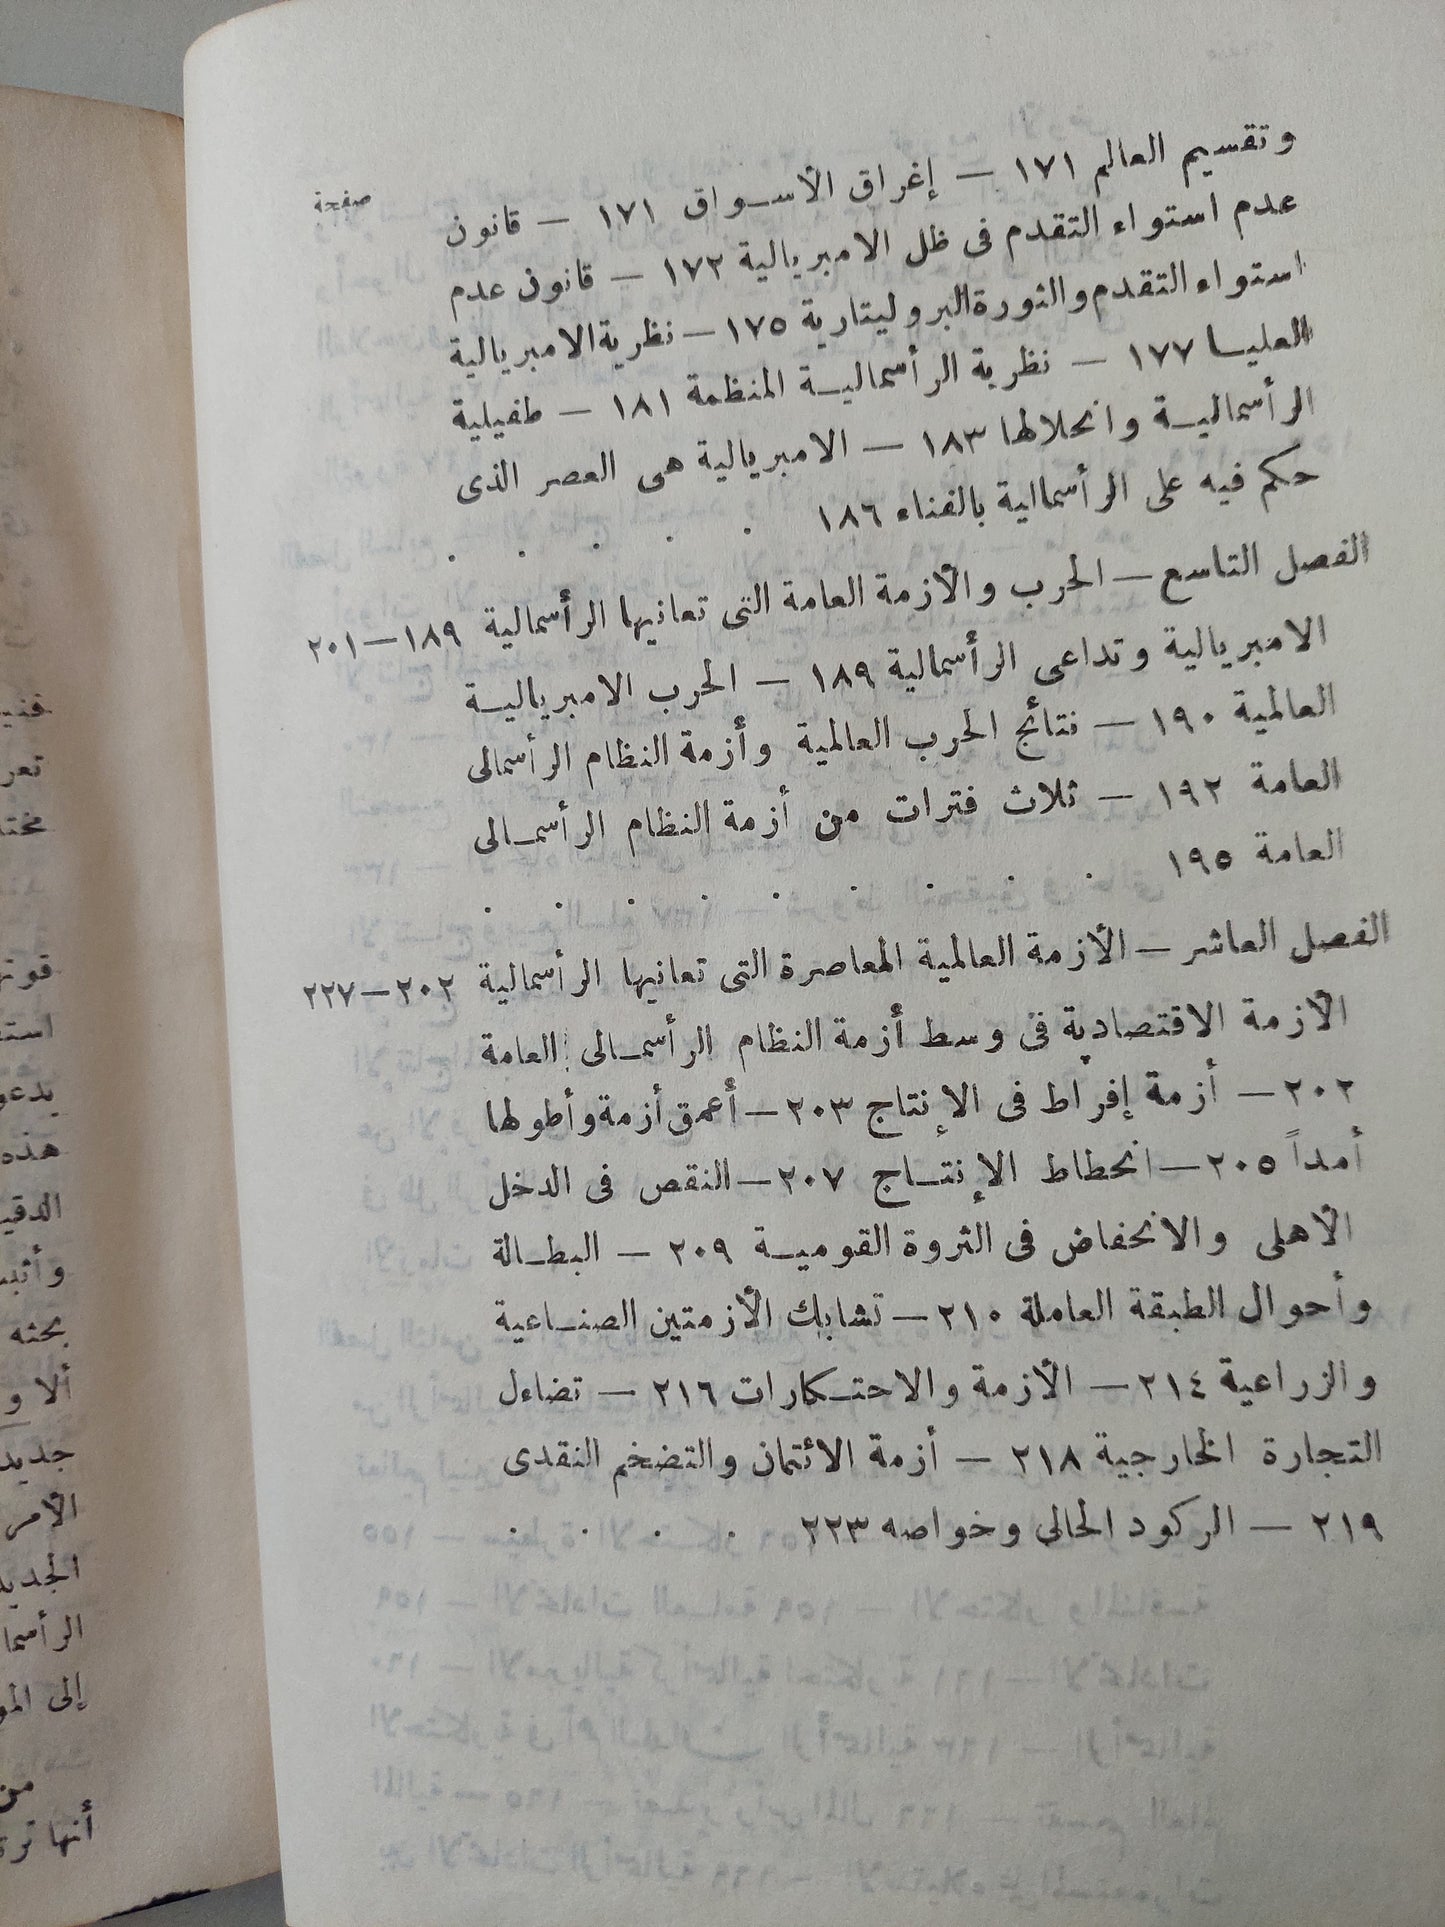 صفحة
وتقسيم العالم ١٧١ — إغراق الأسـواق ١٧١ — قانون
عدم استواء التقدم فى ظل الامبريالية ١٧٢ — قانون عدم
استواء التقدم والثورة البروليتارية ١٧٥ — نظرية الامبريالية
العليـا ١٧٧ — نظرية الرأسماليـة المنظمة ١٨١ — طفيلية
الرأسماليـة وانحلالها ١٨٣ — الامبريالية هى العصر الذى
حكم فيه على الرأسمالية بالفناء ١٨٦ . . . . .
الفصل التاسع — الحرب والأزمة العامة التى تعانيها الرأسمالية ١٨٩—٢٠١
الامبريالية وتداعى الرأسمالية ١٨٩ — الحرب الامبرياليـة
العالمية ١٩٠ — نتائج الحرب العالمية وأزمة النظام الرأسمالى
العامة ١٩٢ — ثلاث فترات من أزمة النظام الرأسمـالى
العامة ١٩٥ . . . . . . . . .
الفصل العاشر — الأزمة العالمية المعاصرة التى تعانيها الرأسمالية ٢٠٢—٢٢٧
الأزمة الاقتصادية فى وسط أزمة النظام الرأسمـالى العامة
٢٠٢ — أزمة إفراط فى الإنتاج ٢٠٣ — أعمق أزمة وأطولها
أمداً ٢٠٥ — انحطاط الإنتـاج ٢٠٧ — النقص فى الدخل
الأهلى والانخفاض فى الثروة القوميـة ٢٠٩ — البطـالة
وأحوال الطبقة العاملة ٢١٠ — تشابك الأزمتين الصنـاعية
والزراعية ٢١٤ — الأزمة والاحتـكارات ٢١٦ — تضاءل
التجارة الخارجية ٢١٨ — أزمة الائتمان والتضخم النقدى
٢١٩ — الركود الحالى وخواصه ٢٢٣ . . . .
قوتها
هذه
وأثب
بحثه
ألا و
جديد
الأمر
إلى المو
من
أنها